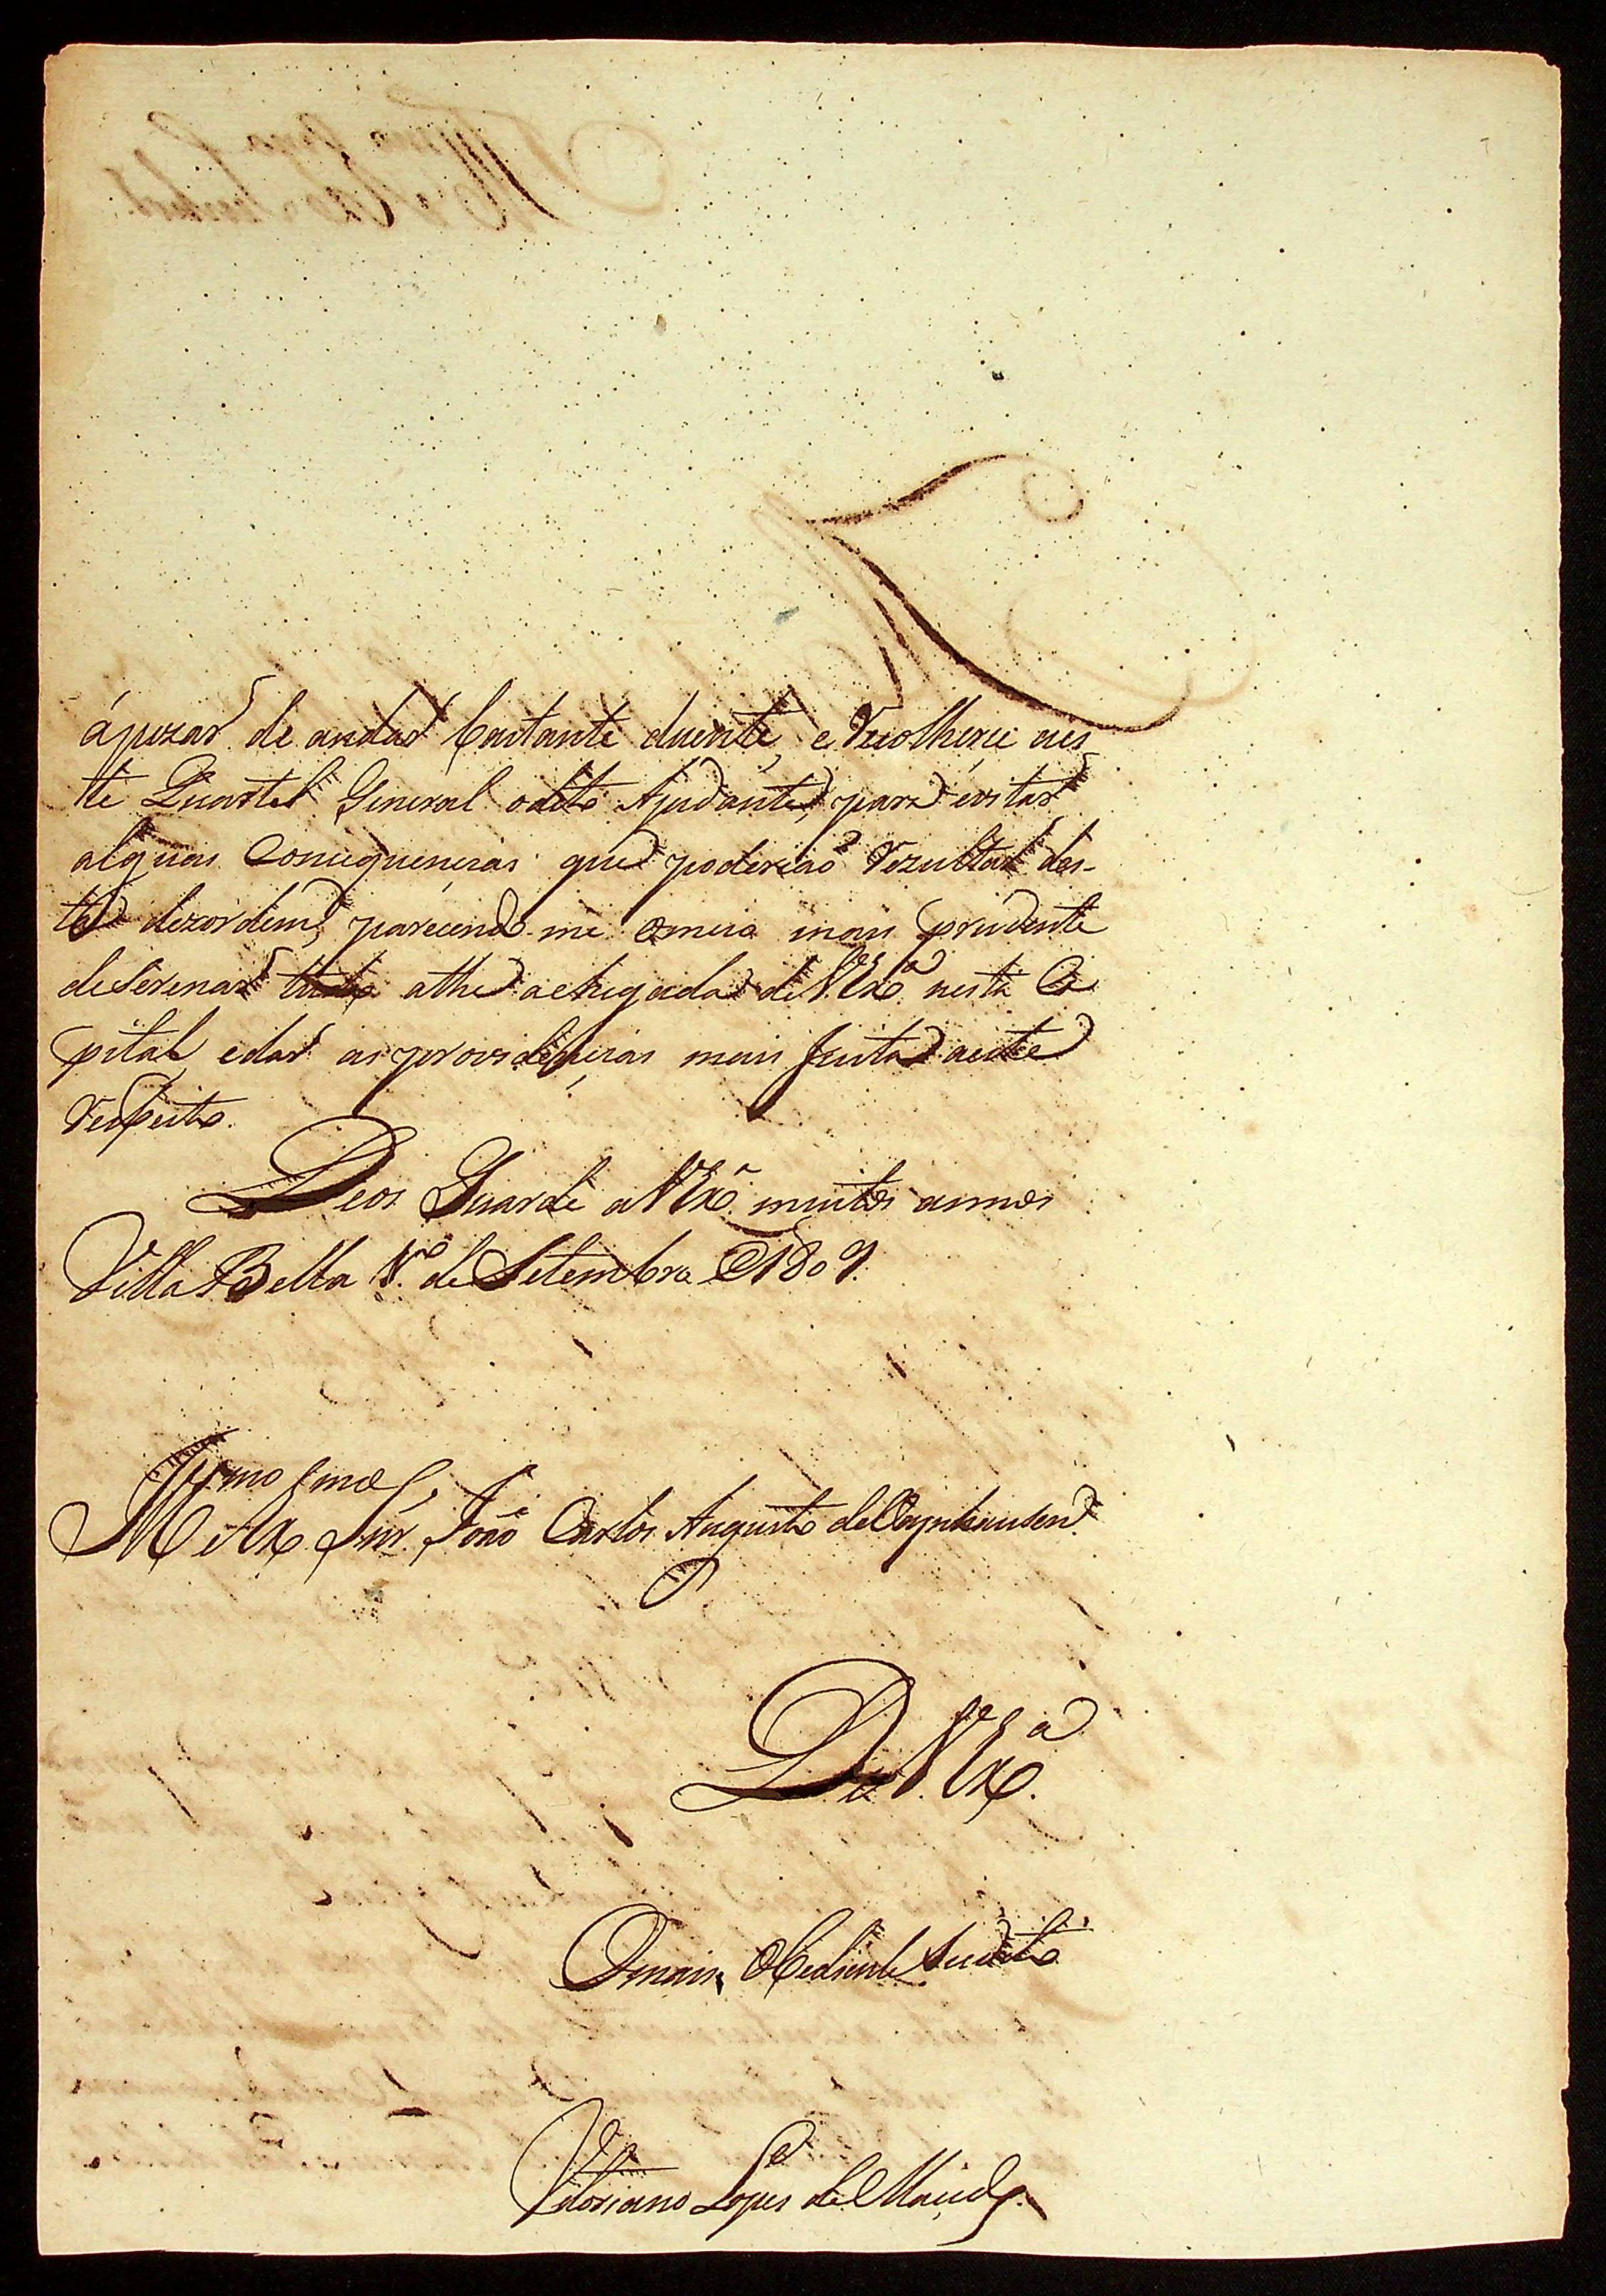 ápezar de andar bastante duente, e recolherei nes-
te Quartel General o dito Ajudante, para evitar
alguas consequencias que poderiaõ rezultar des-
ta dezordem, parecendo-me omeio mais prudente
deserenar tudo athe achegada de V. Exª. nesta Ca
pital, edar as providencias mais justas aeste
respeito.
Deos Guarde a V Exª. muitos annos
Villa Bella 1º. de Setembro de 1809.
Illmo e Exmo Snr. João Carlos Augusto de Oeynhausen
De V. Exª.
Omais Obediente Sudito
Vitoriano Lopes de Macedo